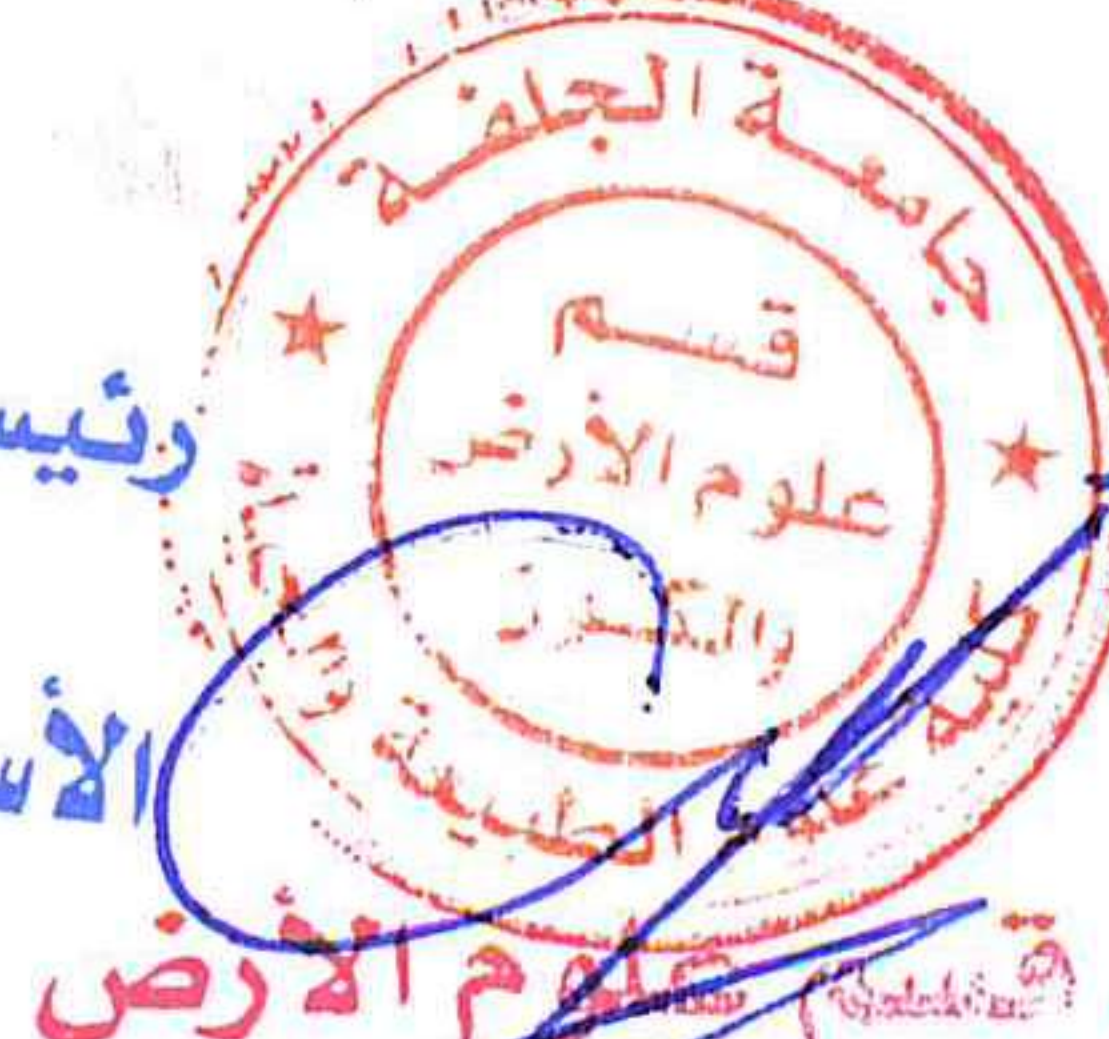 جامعة الجلفة
قسم
علوم الأرض
والكون
كلية علوم الطبيعة والحياة
رئيس
قسم علوم الأرض